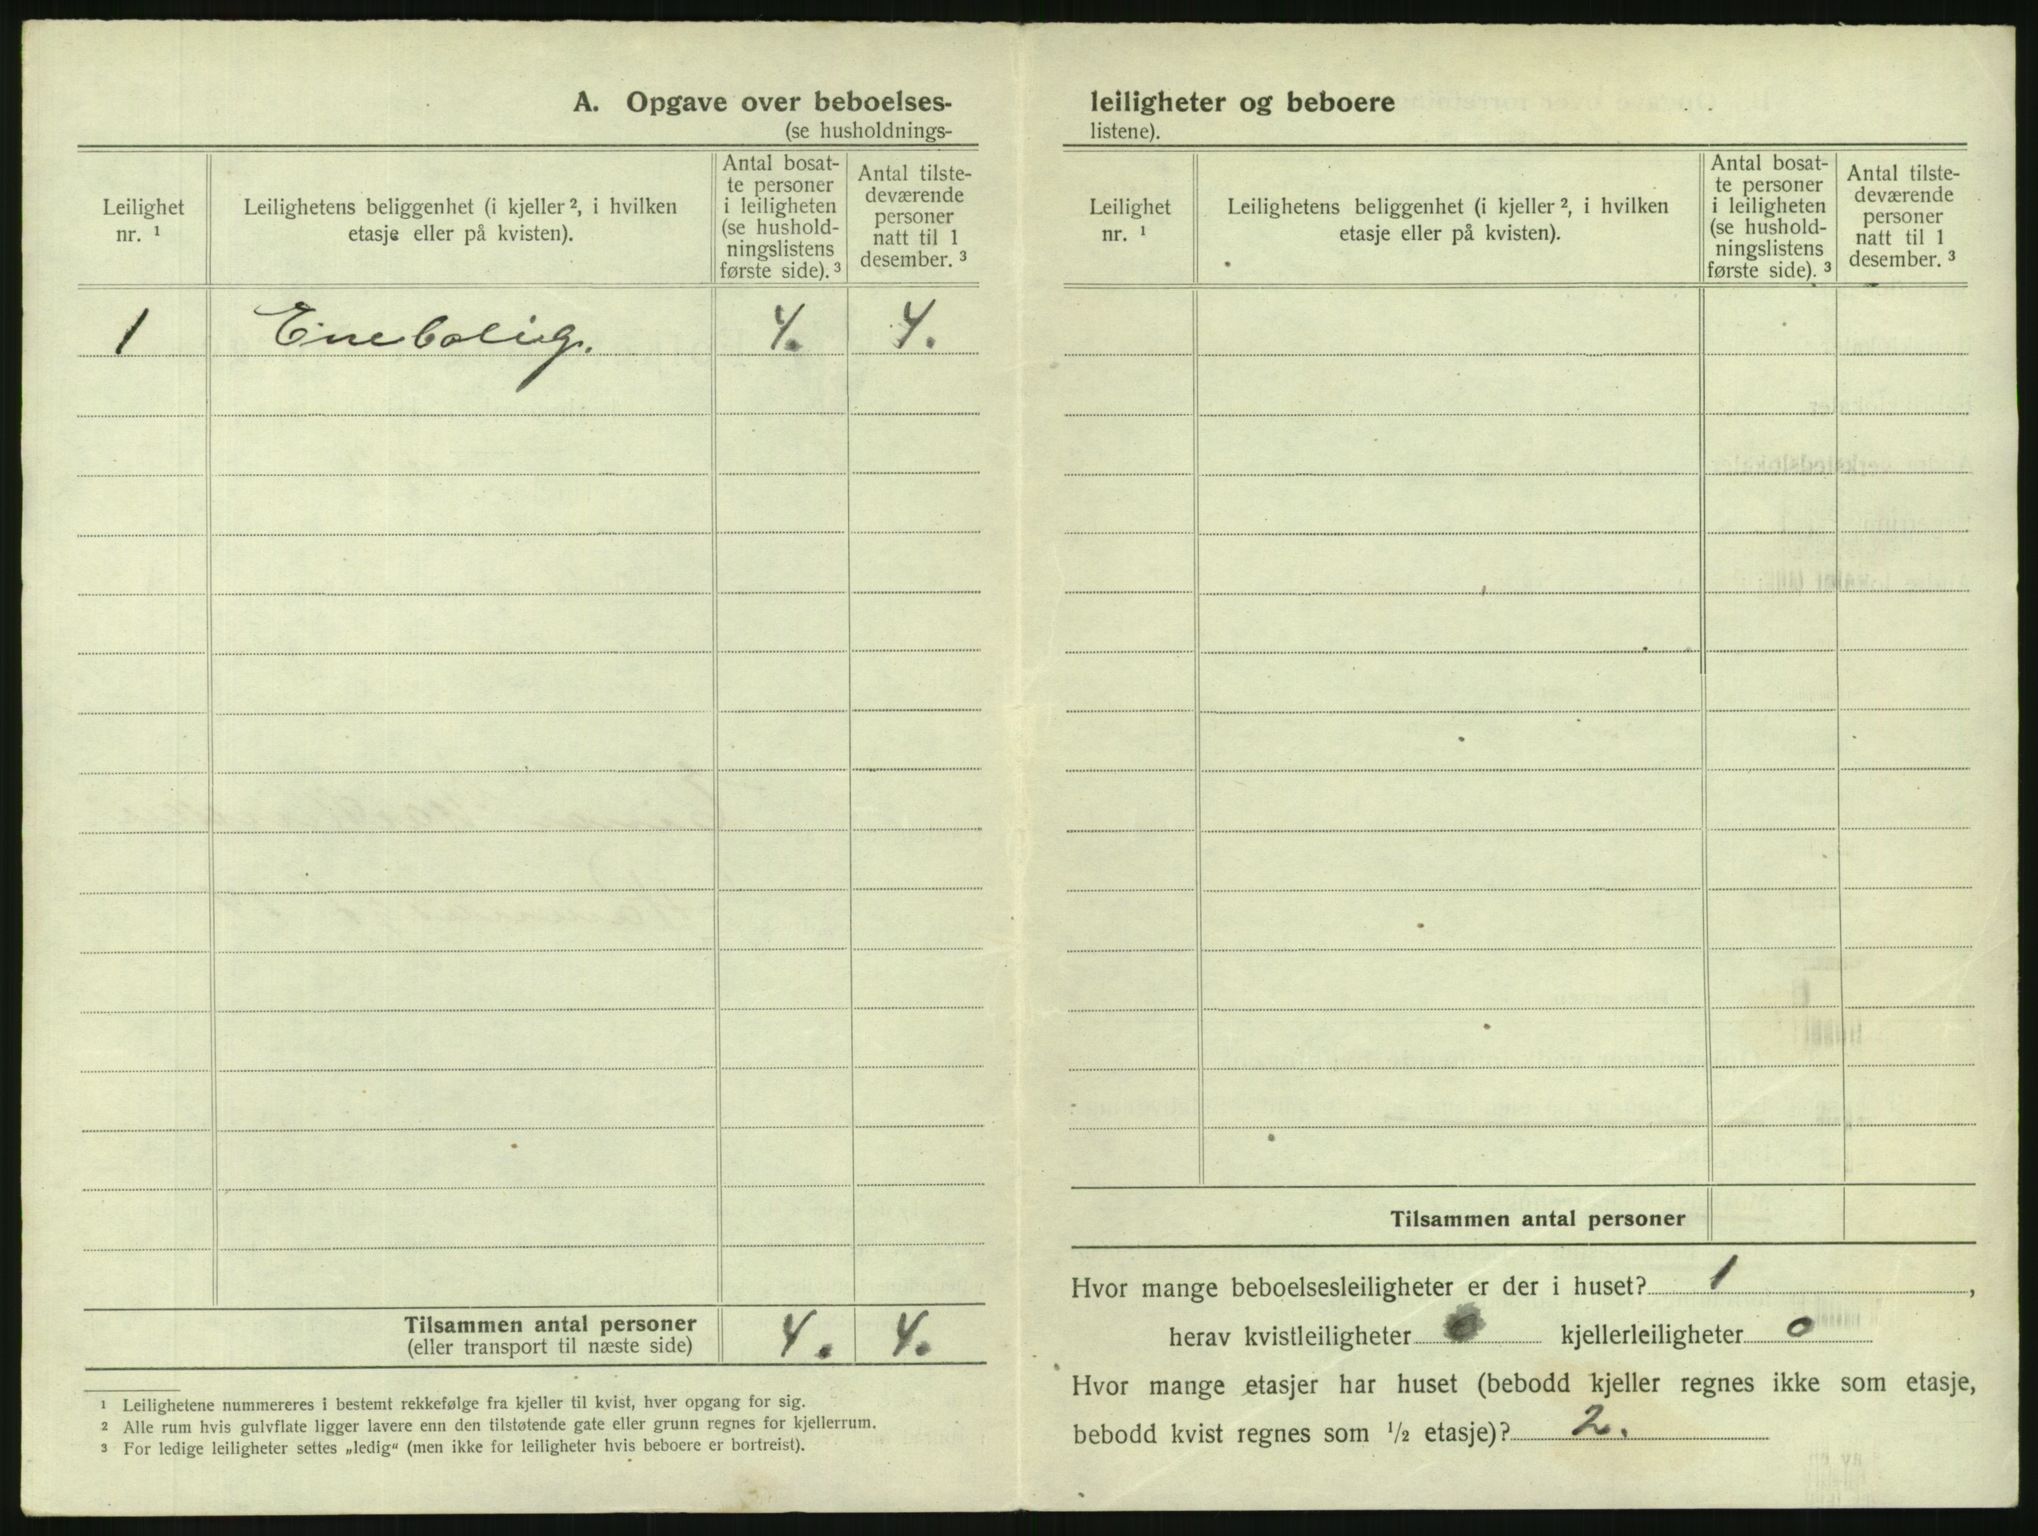 A. Opgave over beboelses-
(se husholdnings-
Leilighet nr. ¹
Leilighetens beliggenhet (i kjeller ², i hvilken etasje eller på kvisten).
Antal bosat-
te personer
i leiligheten
(se hushold-
ningslistens
første side). ³
Antal tilste-
deværende
personer
natt til 1
desember. ³
1 Enebolig. 4. 4.
Tilsammen antal personer 4. 4.
(eller transport til næste side)
¹ Leilighetene nummereres i bestemt rekkefølge fra kjeller til kvist, hver opgang for sig.
² Alle rum hvis gulvflate ligger lavere enn den tilstøtende gate eller grunn regnes for kjellerrum.
³ For ledige leiligheter settes „ledig“ (men ikke for leiligheter hvis beboere er bortreist).
leiligheter og beboere
listene).
Leilighet nr. ¹
Leilighetens beliggenhet (i kjeller ², i hvilken etasje eller på kvisten).
Antal bosat-
te personer
i leiligheten
(se hushold-
ningslistens
første side). ³
Antal tilste-
deværende
personer
natt til 1
desember. ³
Tilsammen antal personer
Hvor mange beboelsesleiligheter er der i huset? 1,
herav kvistleiligheter 0 kjellerleiligheter 0
Hvor mange etasjer har huset (bebodd kjeller regnes ikke som etasje,
bebodd kvist regnes som ½ etasje)? 2.